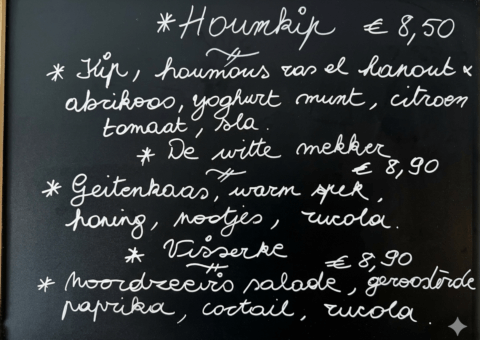 * Houmkip € 8,50
* Kip, houmous ras el hanout &
abrikoos, yoghurt munt, citroen
tomaat, sla.
* De witte mekker
€ 8,90
* Geitenkaas, warm spek,
honing, nootjes, rucola.
* Visserke
€ 8,90
* Noordzeeirs salade, geroosterde
paprika, coctail, rucola.